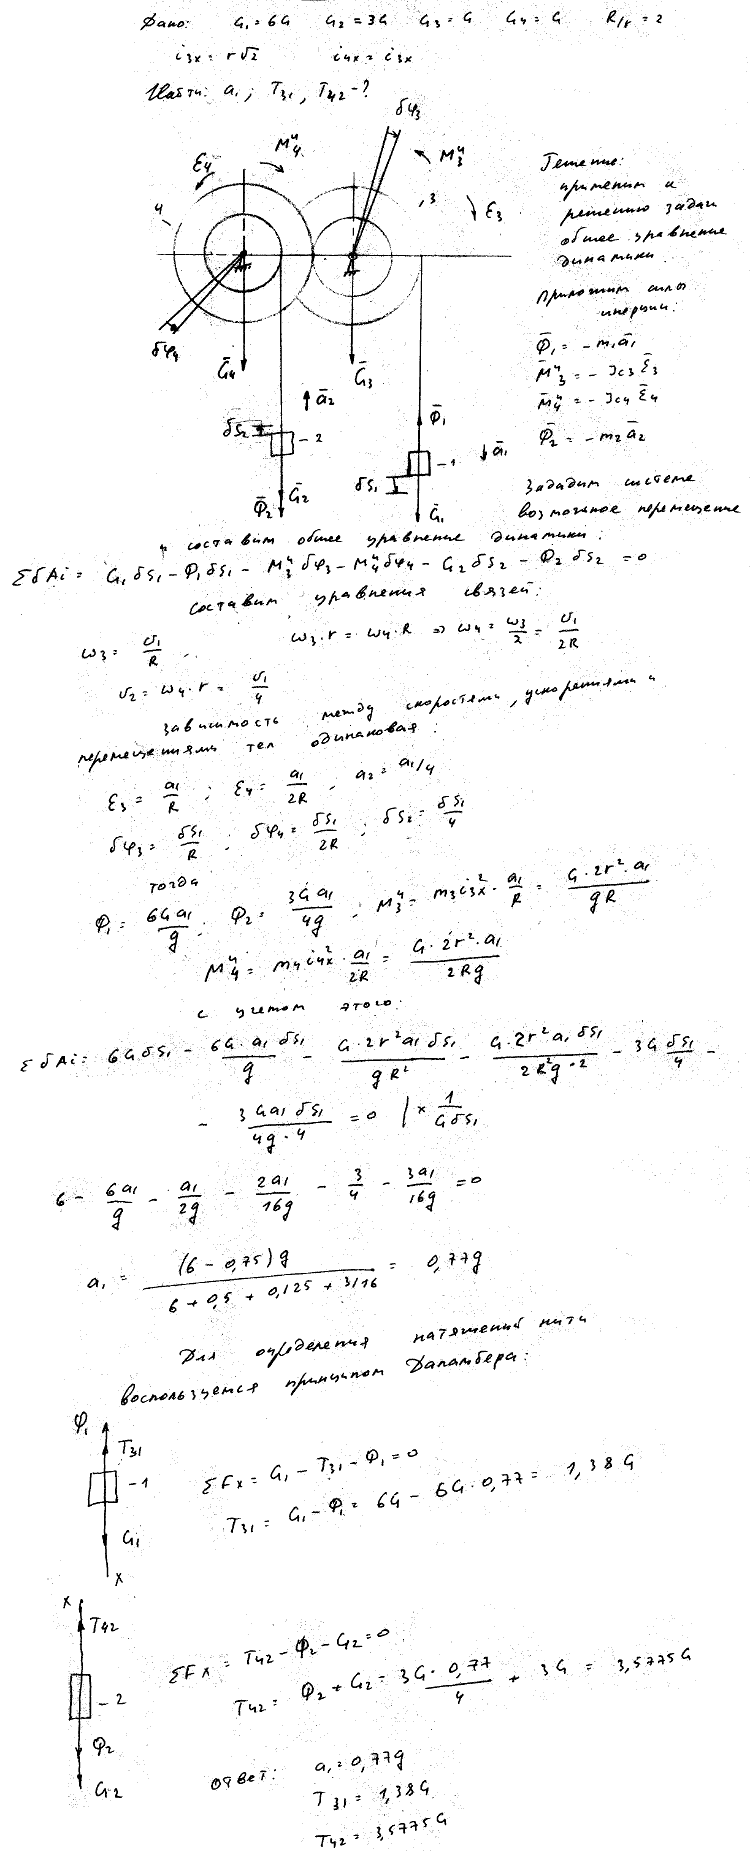 Дано: G₁=6G G₂=3G G₃=G G₄=G R/r=2
i₃ₓ=r√2 i₄ₓ=i₃ₓ
Найти: a₁; T₃₁, T₄₂-?
δφ₃
ε₄ M₄ᵘ M₃ᵘ
4 3 ε₃
δφ₄ Ḡ₄ Ḡ₃
ā₂ Φ̄₁
δS₂ -2 -1 ā₁
Φ̄₂ Ḡ₂ δS₁ Ḡ₁
Решение:
применим к
решению задачи
общее уравнение
динамики.
Приложим силы
инерции:
Φ̄₁ = -m₁ā₁
M̄₃ᵘ = -Jc₃ ε̄₃
M̄₄ᵘ = -Jc₄ ε̄₄
Φ̄₂ = -m₂ā₂
Зададим системе
возможное перемещение
и составим общее уравнение динамики:
ΣδAi = G₁δS₁ - Φ₁δS₁ - M₃ᵘδφ₃ - M₄ᵘδφ₄ - G₂δS₂ - Φ₂δS₂ = 0
Составим уравнения связей:
ω₃ = υ₁/R ω₃·r = ω₄·R ⇒ ω₄ = ω₃/2 = υ₁/2R
υ₂ = ω₄·r = υ₁/4
Зависимость между скоростями, ускорениями и
перемещениями тел одинаковая:
ε₃ = a₁/R ; ε₄ = a₁/2R , a₂ = a₁/4
δφ₃ = δS₁/R , δφ₄ = δS₁/2R ; δS₂ = δS₁/4
тогда
Φ₁ = 6Ga₁/g , Φ₂ = 3Ga₁/4g ; M₃ᵘ = m₃i₃ₓ²·a₁/R = G·2r²·a₁/gR
M₄ᵘ = m₄i₄ₓ²·a₁/2R = G·2r²·a₁/2Rg
с учетом этого:
ΣδAi: 6GδS₁ - 6G·a₁δS₁/g - G·2r²a₁δS₁/gR² - G·2r²a₁δS₁/2R²g·2 - 3GδS₁/4 -
- 3Ga₁δS₁/4g·4 = 0 | × 1/GδS₁
6 - 6a₁/g - a₁/2g - 2a₁/16g - 3/4 - 3a₁/16g = 0
a₁ = (6-0,75)g/6+0,5+0,125+3/16 = 0,77g
Для определения натяжений нити
воспользуемся принципом Даламбера:
Φ₁
T₃₁
-1
G₁
x
ΣFx = G₁ - T₃₁ - Φ₁ = 0
T₃₁ = G₁ - Φ₁ = 6G - 6G·0,77 = 1,38G
x
T₄₂
-2
Φ₂
G₂
ΣFx = T₄₂ - Φ₂ - G₂ = 0
T₄₂ = Φ₂ + G₂ = 3G·0,77/4 + 3G = 3,5775G
Ответ: a₁=0,77g
T₃₁ = 1,38G
T₄₂ = 3,5775G